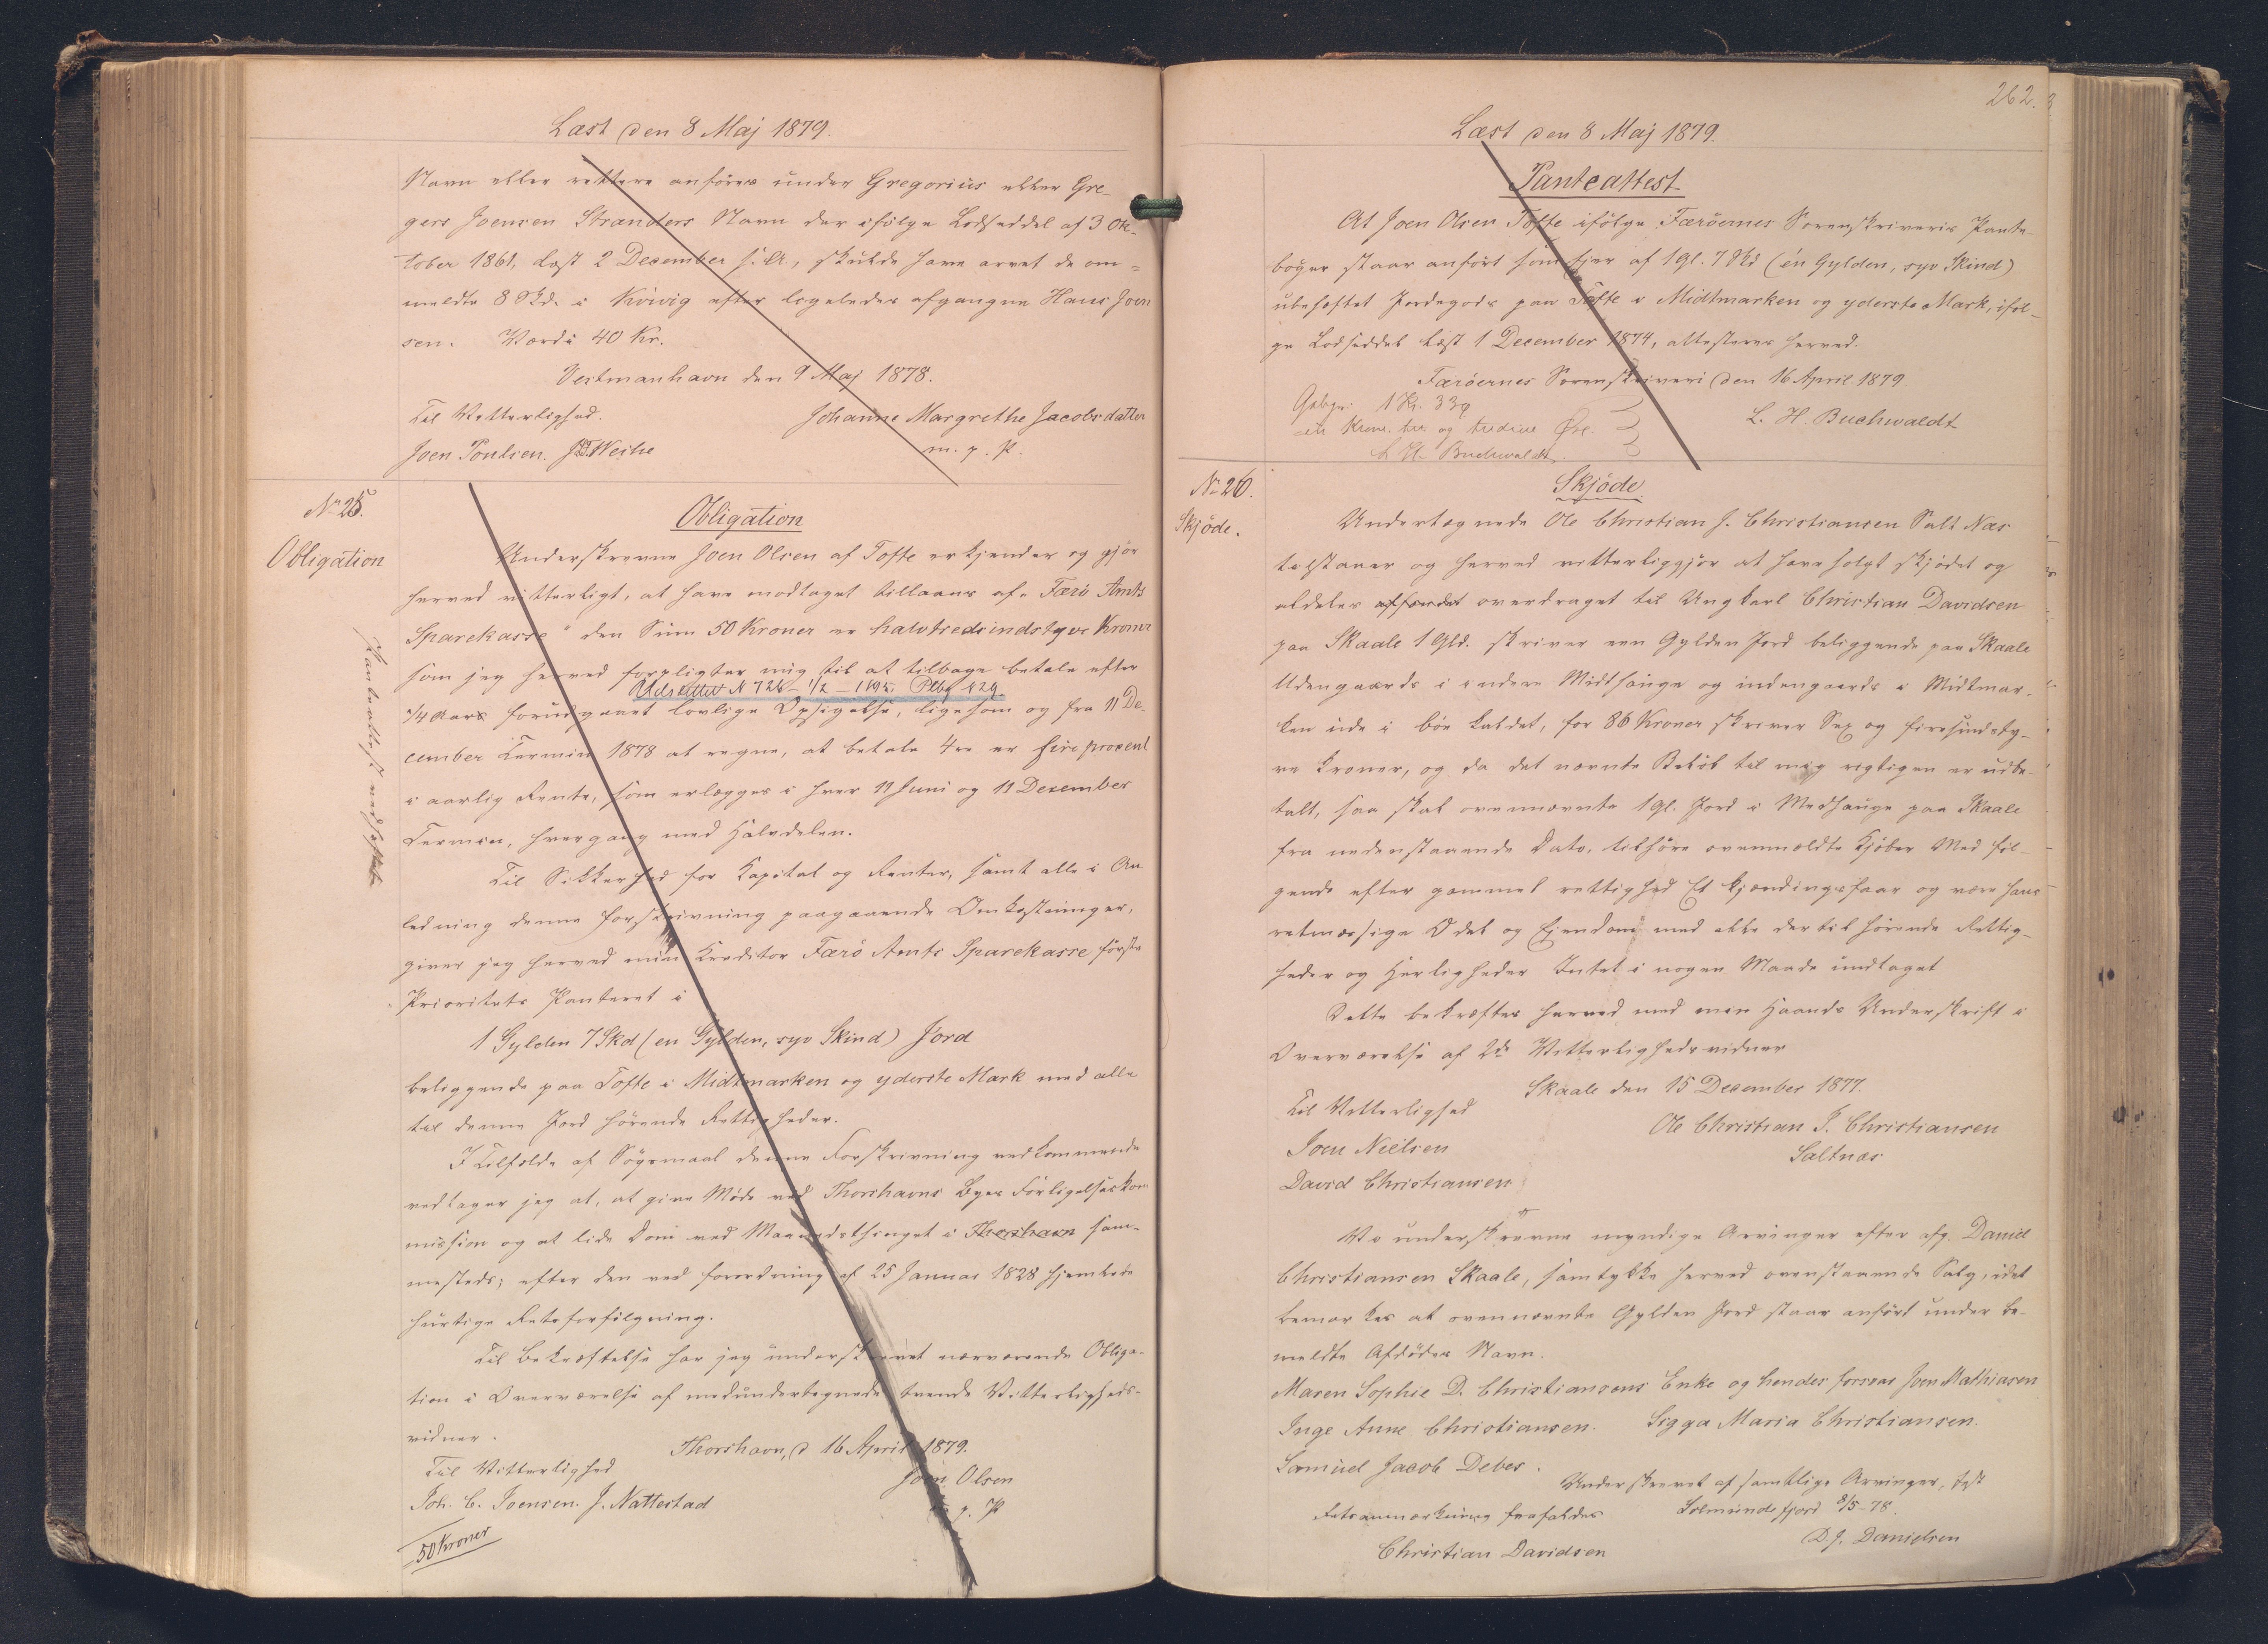 Læst den 8 Maj 1879.
Navn eller rettere anföres under Gregorius eller Gre-
gers Joensen Stranders Navn der ifölge Lodseddel af 3 Ok-
tober 1861, læst 2 December s. A., skulde have arvet de om-
meldte 8 Skd. i Kvivig efter ligeledes afgangne Hans Joen
sen. Værdi 40 Kr.
Vestmanhavn den 9 Maj 1878.
Til Vitterlighed. Johanne Margrethe Jacobsdatter
Joen Poulsen. Weihe m. p. P.
No 25. Obligation
Obligation
Underskrevne Joen Olsen af Tofte erkjender og gjör
herved vitterligt, at have modtaget tillaans af "Færö Amts
Sparekasse" den Sum 50 Kroner er halvtredsindstyve Kroner
som jeg herved forpligter mig til at tilbage betale efter
Udslettet N 726 - 1/2 - 1895.
3/4 Aars forudgaaet lovlige Opsigelse, ligesom og fra 11 De-
cember Termin 1878 at regne, at betale 4 er fire procent
i aarlig Rente, som erlægges i hver 11 Juni og 11 December
Termin, hvergang med Halvdelen.
Til Sikkerhed for Kapital og Renter, samt alle i An
ledning denne Forskrivning paagaaende Omkostninger,
giver jeg herved min Kreditor Færö Amts Sparekasse förste
Prioritets Panteret i
1 Gylden 7 Skd (en Gylden, syv Skind) Jord
beliggende paa Tofte i Midtmarken og yderste Mark med alle
til denne Jord hörende Rettigheder.
I Tilfælde af Sögsmaal denne Forskrivning vedkommende
vedtager jeg at, at give Möde ved Thorshavns Byes Forligelseskom
mission og at lide Dom ved Maanedsthinget i Thorshavn sam-
mesteds; efter den ved Forordning af 25 Januar 1828 hjemlede
hurtige Retsforfölgning.
Til Bekræftelse har jeg underskrevet nærværende Obliga-
tion i Overværelse af medundertegnede tvende Vitterligheds-
vidner.
Thorshavn, d 16 April 1879.
Til Vitterlighed Joen Olsen
Joh. C. Joensen. J. Nattestad m. p. P
50 Kroner
Panteattest vedhæftet
262.
Læst den 8 Maj 1879.
Panteattest
At Joen Olsen Tofte ifölge Færöernes Sorenskriveris Pante-
böger staar anfört som Ejer af 1 Gl. 7 Skd (én Gylden, syv Skind)
ubehæftet Jordegods paa Tofte i Midtmarken og yderste Mark, iföl-
ge Lodseddel læst 1 December 1874, attesteres herved.
Færöernes Sorenskriveri den 16 April 1879.
Gebyr: 1 Kr. 33 Ø
L. H. Buchwaldt
én Krone tre og tredive Øre.
L. H. Buchwaldt.
No 26. Skjöde
Skjöde.
Undertegnede Ole Christian J. Christiansen Salt Næs
tilstaaer og herved vitterliggjör at have solgt skjödet og
aldeles afhændet overdraget til Ungkarl Christian Davidsen
paa Skaale 1 Gld. skriver een Gylden Jord beliggende paa Skaale
Udengaards i indere Midthauge og indengaards i Midtmar-
ken ude i böe kaldet, for 86 Kroner skriver Sex og firesindsty-
ve Kroner, og da det nævnte Belöb til mig rigtigen er udbe-
talt, saa skal ovennævnte 1 Gl. Jord i Medhauge paa Skaale
fra nedenstaaende Dato, tilhöre ovenmeldte Kjöber Med föl-
gende efter gammel rettighed Et kjændingsfaar og være hans
retmæssige Odel og Eiendom med alle dertil hörende Rettig-
heder og Herligheder Intet i nogen Maade undtaget
Dette bekræftes herved med min Haands Underskrift i
Overværelse af 2de Vitterlighedsvidner
Skaale den 15 December 1877.
Til Vitterlighed
Ole Christian J. Christiansen
Joen Nielsen
Saltnæs
David Christiansen
Vi underskrevne myndige Arvinger efter afg. Daniel
Christiansen Skaale, samtykke herved ovenstaaende Salg, idet
bemærkes at ovennævnte Gylden Jord staar anfört under be-
meldte Afdödes Navn.
Maren Sophie D. Christiansens Enke og hendes forsvar Joen Mathiasen
Inge Anne Christiansen. Sigga Maria Christiansen.
Samuel Jacob Debes.
Underskrevet af samtlige Arvinger, test
Retsanmærkning frafaldes Solmundefjord 8/5-78.
D. J. Danielsen
Christian Davidsen